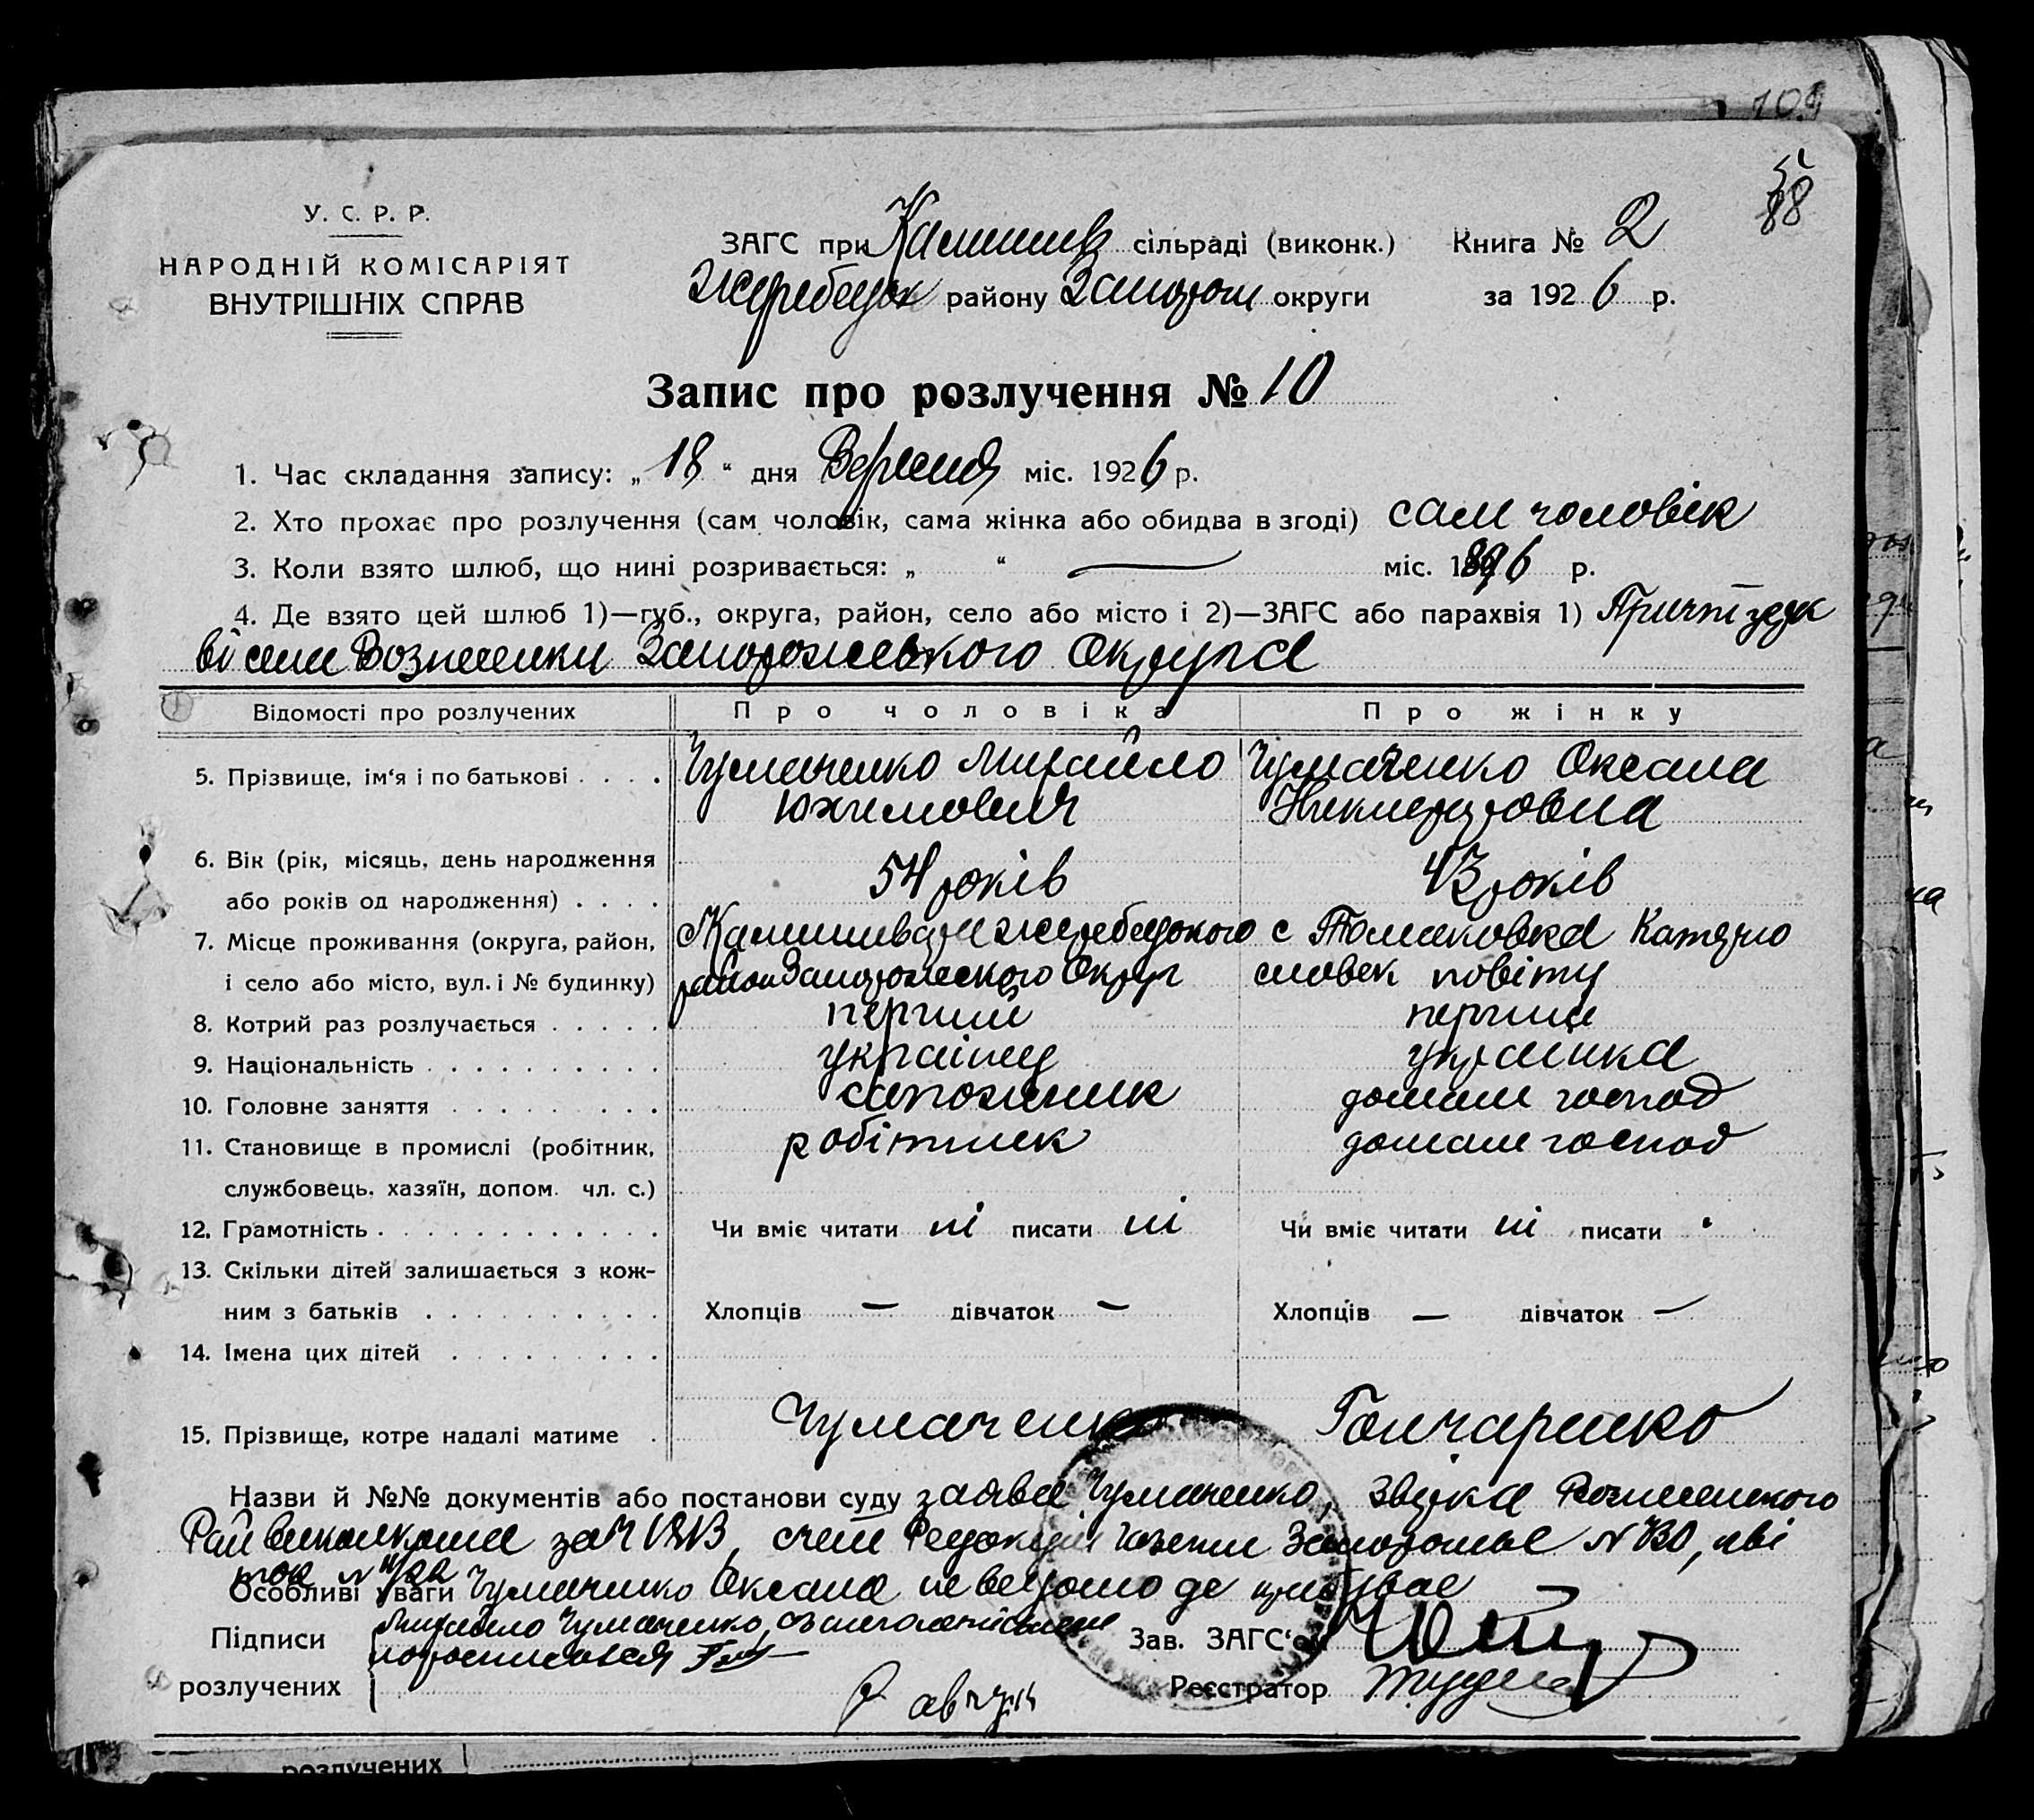 109
88
У. С. Р. Р.
НАРОДНІЙ КОМІСАРІЯТ
ВНУТРІШНІХ СПРАВ
ЗАГС при Камишев сільраді (виконк.) Книга № 2
Жеребецьк району Запорож округи за 1926 р.
Запис про розлучення № 10
1. Час складання запису: „18“ дня Вересня міс. 1926 р.
2. Хто прохає про розлучення (сам чоловік, сама жінка або обидва в згоді) сам чоловік
3. Коли взято шлюб, що нині розривається: „ “ — міс. 1896 р.
4. Де взято цей шлюб 1)—губ., округа, район, село або місто і 2)—ЗАГС або парахвія 1)
ві сели Вознесенки Запорожського Округа
Відомості про розлучених Про чоловіка Про жінку
5. Прізвище, ім‘я і по батькові . . . . Чумаченко Михайло Чумаченко Оксана
Юхимович Никифоровна
6. Вік (рік, місяць, день народження
або років од народження) . . . . 54 років 43 років
7. Місце проживання (округа, район, Жеребецького с Томаковка Катерно
і село або місто, вул. і № будинку) район Запорожського Округ славск повіту
8. Котрий раз розлучається . . . . . перший перший
9. Національність . . . . . . . . . . українец украинка
10. Головне заняття . . . . . . . . . сапожник домаш господ
11. Становище в промислі (робітник, робітник домаш господ
службовець, хазяїн, допом. чл. с.)
12. Грамотність . . . . . . . . . . . . Чи вміє читати ні писати ні Чи вміє читати ні писати
13. Скільки дітей залишається з кож-
ним з батьків . . . . . . . . . . Хлопців — дівчаток — Хлопців — дівчаток —
14. Імена цих дітей . . . . . . . . .
15. Прізвище, котре надалі матиме . Чумаченко Гончаренко
Назви й №№ документів або постанови суду заява Чумаченко,
Райвиконкома за Ч 1313, счет Редокции газети Запорожье № 730, кві
тов №
Особливі уваги Чумаченко Оксана неведомо де
Підписи Михайло Чумаченко, Зав. ЗАГС‘ом
розлучених Реєстратор
розлучених